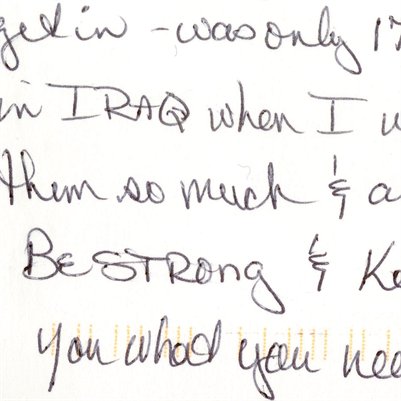 get in - was only 17
in IRAQ when I w
them so much & a
BE STRONG & Ke
you what you nee